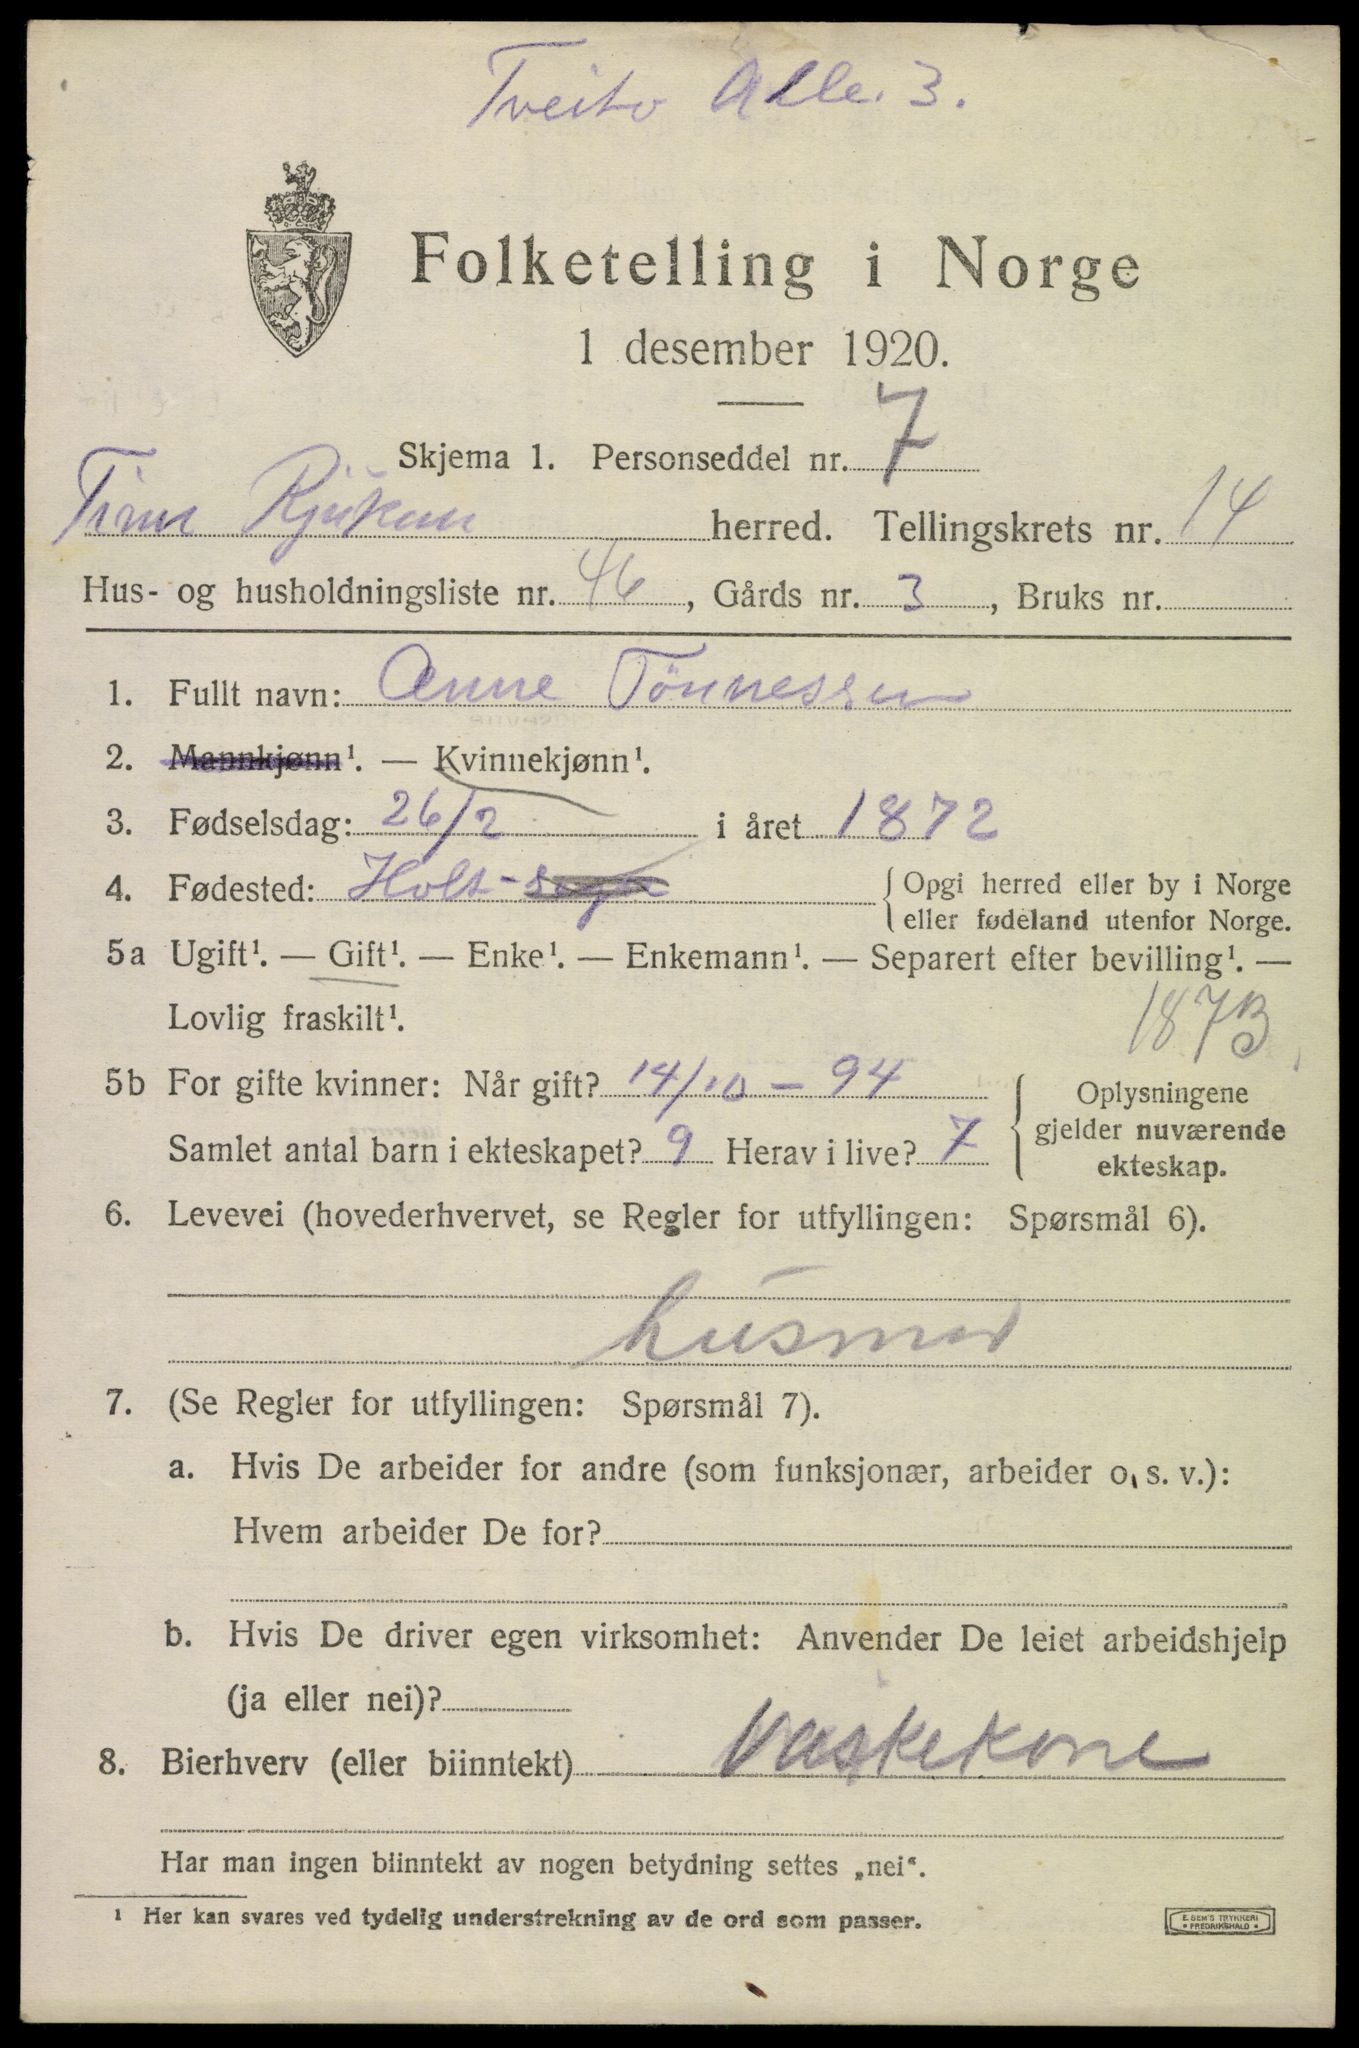 Tveito Alle. 3.
Folketelling i Norge
1 desember 1920.
Skjema 1. Personseddel nr. 7
Tinn Rjukan herred. Tellingskrets nr. 14
Hus- og husholdningsliste nr. 46, Gårds nr. 3, Bruks nr.
1. Fullt navn: Anne Tönnessen
2. Mannkjønn¹. — Kvinnekjønn¹.
3. Fødselsdag: 26/2 i året 1872
4. Fødested: Holt - { Opgi herred eller by i Norge
eller fødeland utenfor Norge.
5a Ugift¹. — Gift¹. — Enke¹. — Enkemann¹. — Separert efter bevilling¹. —
Lovlig fraskilt¹.
187B
5b For gifte kvinner: Når gift? 14/10 - 94 { Oplysningene
gjelder nuværende
ekteskap.
Samlet antal barn i ekteskapet? 9 Herav i live? 7
6. Levevei (hovederhvervet, se Regler for utfyllingen: Spørsmål 6).
husmor
7. (Se Regler for utfyllingen: Spørsmål 7).
a. Hvis De arbeider for andre (som funksjonær, arbeider o. s. v.):
Hvem arbeider De for?
b. Hvis De driver egen virksomhet: Anvender De leiet arbeidshjelp
(ja eller nei)?
8. Bierhverv (eller biinntekt) Vaskekone
Har man ingen biinntekt av nogen betydning settes „nei“.
¹ Her kan svares ved tydelig understrekning av de ord som passer.
E. SEM'S TRYKKERI
FREDRIKSHALD